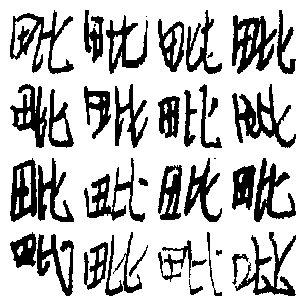 毗毗毗毗
毗毗毗毗
毗毗毗毗
毗毗毗毗